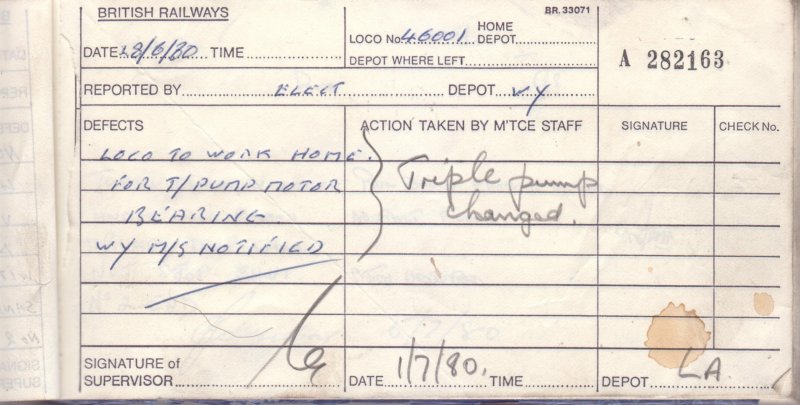 BRITISH RAILWAYS
BR.33071
DATE 28/6/80 TIME
LOCO No. 46001 HOME DEPOT
DEPOT WHERE LEFT
A 282163
REPORTED BY ELECT DEPOT WY
DEFECTS
ACTION TAKEN BY M'TCE STAFF
SIGNATURE
CHECK No.
LOCO TO WORK HOME.
FOR T/PUMP MOTOR
BEARING
WY M/S NOTIFIED
Triple pump
changed.
SIGNATURE of
SUPERVISOR
DATE 1/7/80. TIME
DEPOT LA